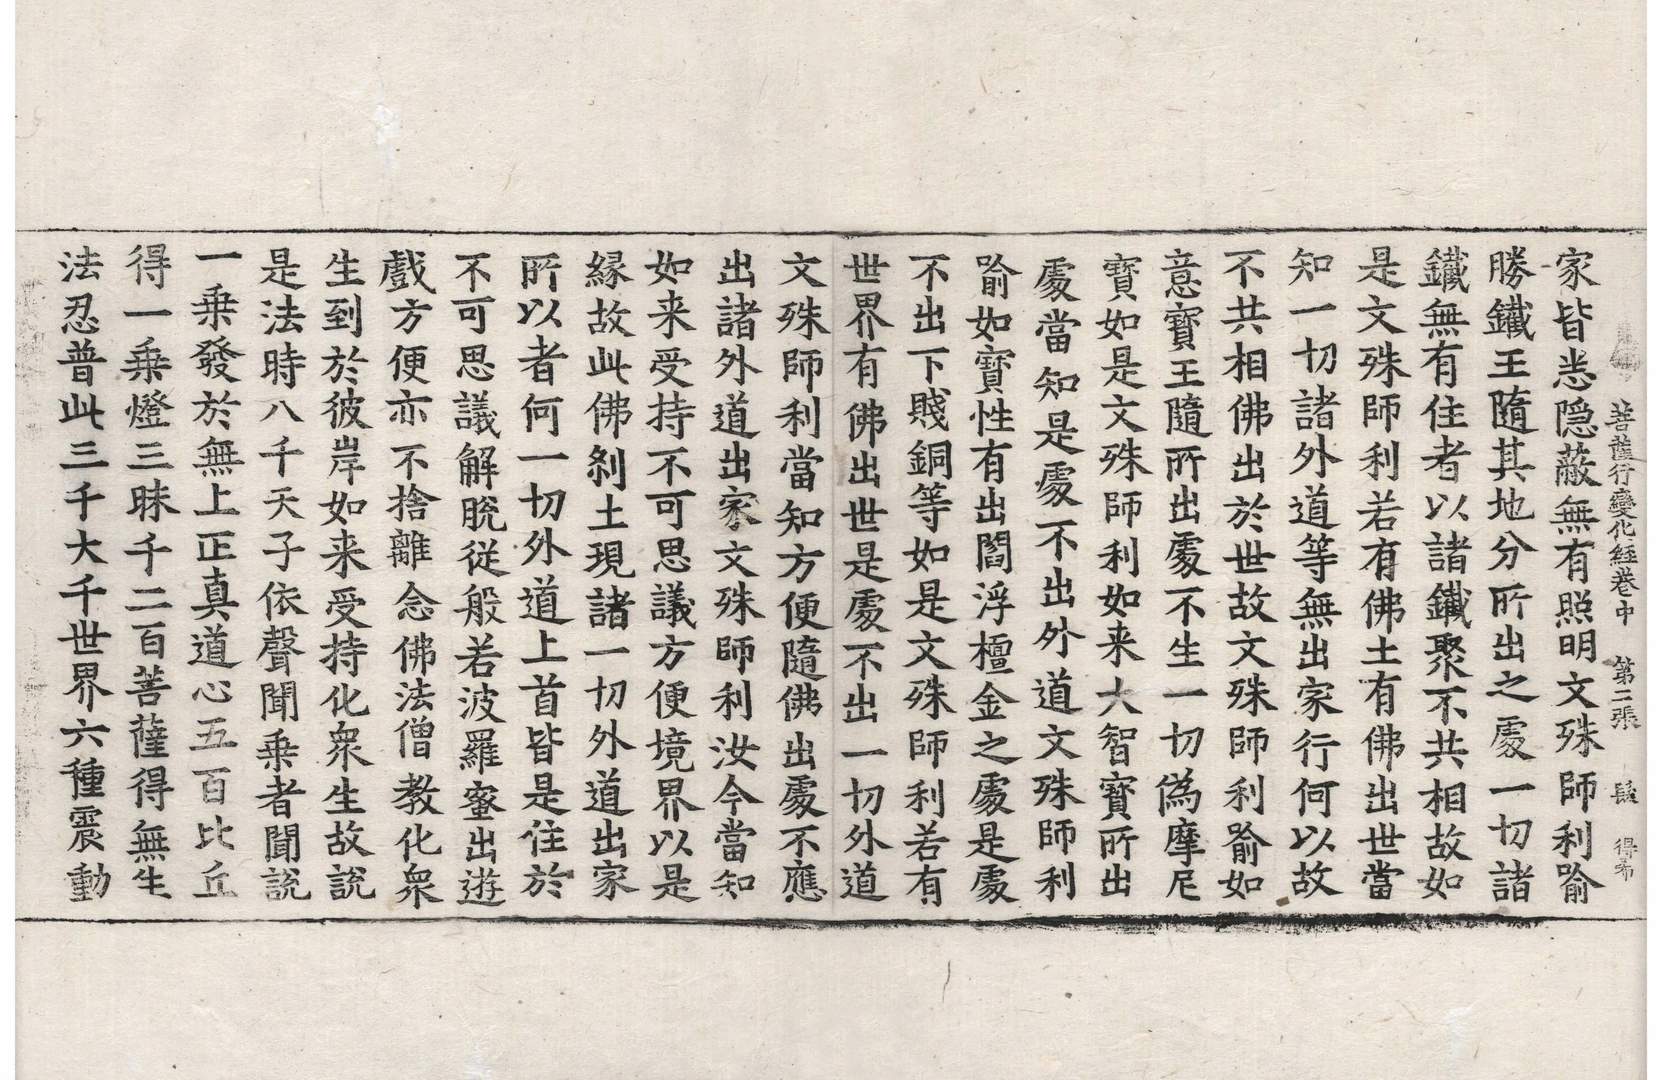 菩薩行變化經卷中　第二張　髮　得希
家皆悉隠蔽無有照明文殊師利喻
勝鐵王隨其地分所出之處一切諸
鐵無有住者以諸鐵聚不共相故如
是文殊師利若有佛土有佛出世當
知一切諸外道等無出家行何以故
不共相佛出於世故文殊師利喻如
意寶王隨所出處不生一切偽摩尼
寶如是文殊師利如来大智寶所出
處當知是處不出外道文殊師利
喻如寶性有出閻浮檀金之處是處
不出下賤銅等如是文殊師利若有
世界有佛出世是處不出一切外道
文殊師利當知方便隨佛出處不應
出諸外道出家文殊師利汝今當知
如来受持不可思議方便境界以是
縁故此佛刹土現諸一切外道出家
所以者何一切外道上首皆是住於
不可思議解脫從般若波羅蜜出遊
戲方便亦不捨離念佛法僧教化衆
生到於彼岸如来受持化衆生故說
是法時八千天子依聲聞乗者聞說
一乗發於無上正真道心五百比丘
得一乗燈三昧千二百菩薩得無生
法忍普此三千大千世界六種震動